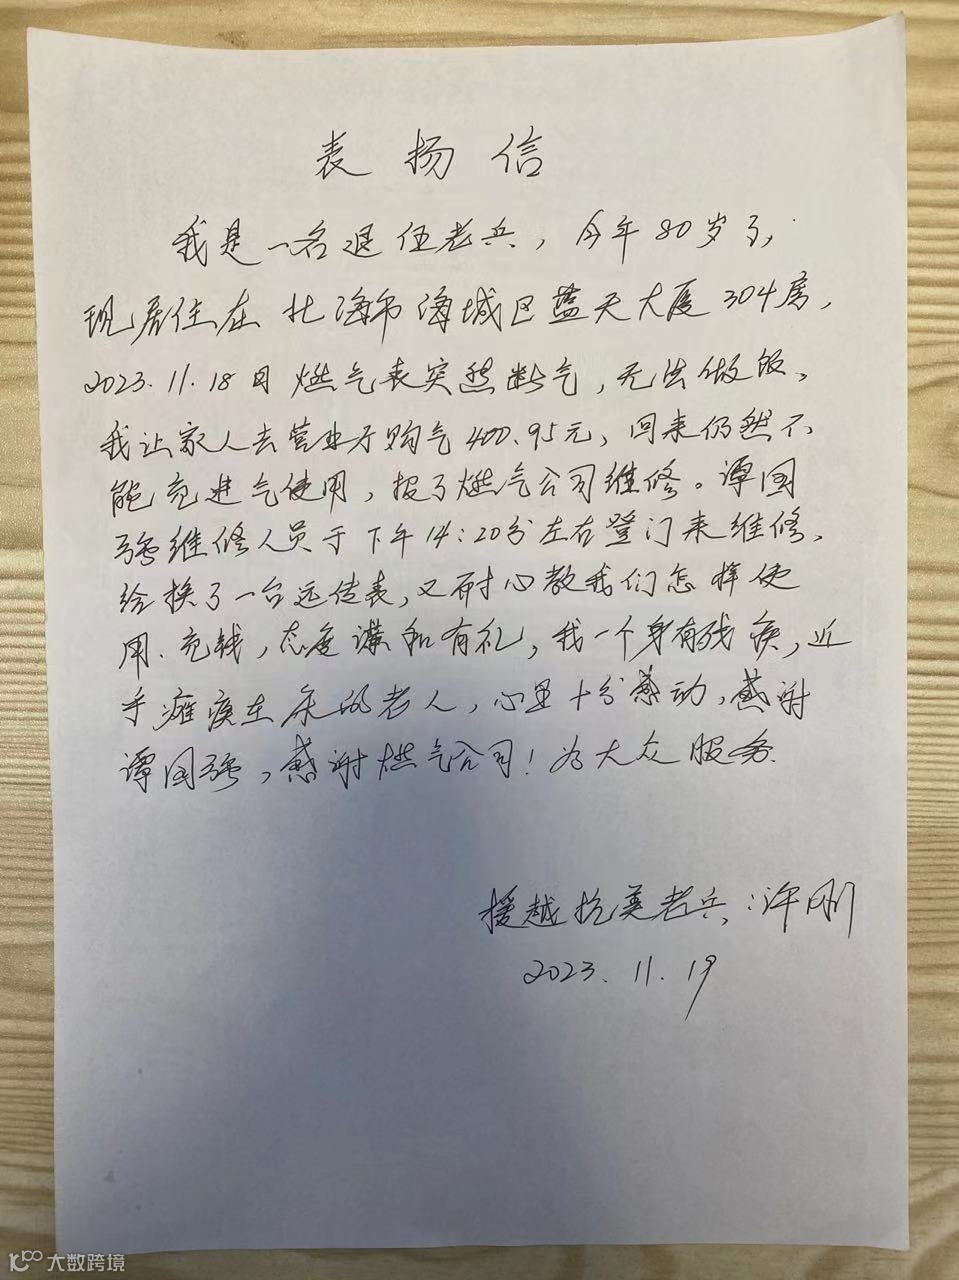 表扬信
我是一名退伍老兵，今年80岁了，
现居住在北海市海城区蓝天大厦304房，
2023.11.18日燃气表突然断气，无法做饭、
我让家人去营业厅购气400.95元，回来仍然不
能充进气使用，报了燃气公司维修。谭国
强维修人员于下午14:20分左右登门来维修，
给换了一台远传表，又耐心教我们怎样使
用、充钱，态度谦和有礼，我一个身有残疾，近
乎瘫痪在床的老人，心里十分感动，感谢
谭国强，感谢燃气公司！为大众服务.
援越抗美老兵：许刚
2023.11.19
大数跨境